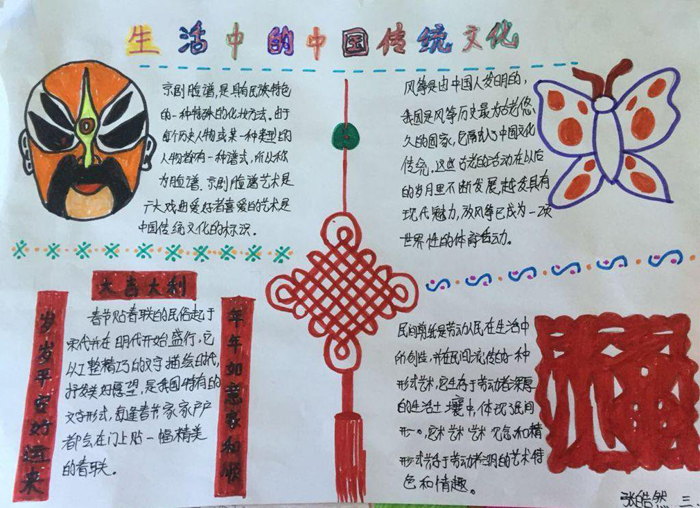 生活中的中国传统文化
京剧脸谱,是具有民族特色
的一种特殊的化妆方法。由于
每个历史人物或某一种类型的
人物都有一种谱式,所以称
为脸谱。京剧脸谱艺术是
广大戏曲爱好者喜爱的艺术是
中国传统文化的标识。
风筝是由中国人发明的,
我国是风筝历史最为古老悠
久的国家,它融入了中国文化
传统,这些古老的活动在以后
的岁月里不断发展,越发具有
现代魅力,放风筝已成为一项
世界性的体育活动。
大喜大利
岁岁平安好运来
春节贴春联的民俗起于
宋代并在明代开始盛行,它
以工整精巧的文字描绘时代,
抒发美好愿望,是我国特有的
文学形式,每逢春节家家户户
都会在门上贴一幅精美
的春联。
年年如意家和顺
民间剪纸是劳动人民在生活中
所创造,并在民间流传的一种
形式艺术,它生存于劳动者深厚
的生活土壤中,体现
艺术
形式
劳动者
的艺术特
色和情趣。
福
张皓然 三、